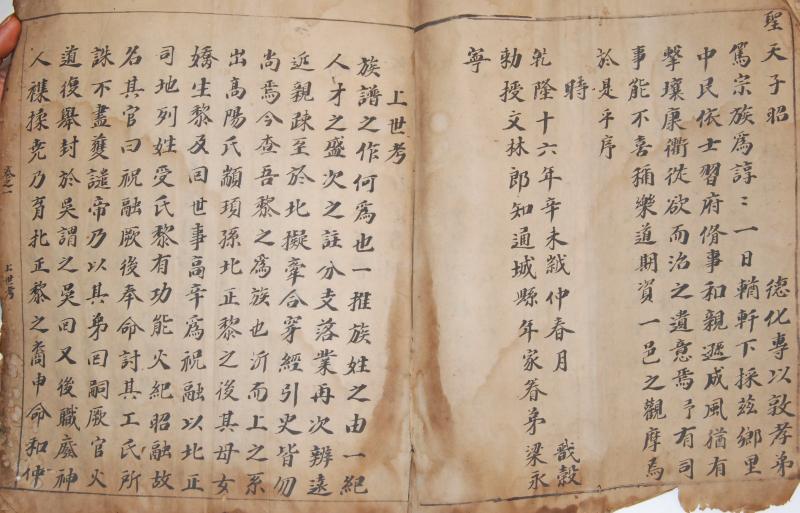 聖天子昭 德化專以敦孝弟
篤宗族為諄〻一日輶軒下採茲鄉里
中民依士習府脩事和親遜成風猶有
擊壤康衢從欲而治之遺意焉予有司
事能不喜稱樂道期資一邑之觀摩焉
於是乎序
時
乾隆十六年辛未歲仲春月 戩穀
勅授文林郎知通城縣年家眷弟梁永
寧
上世考
族譜之作何為也一推族姓之由一紀
人才之盛次之註分支落業再次辨遠
近親疎至於北擬牽合穿經引史皆勿
尚焉今查吾黎之為族也沂而上之系
出高陽氏顓頊孫北正黎之後其母女
嬌生黎及回世事高辛為祝融以北正
司地列姓受氏黎有功能火紀昭融故
名其官曰祝融厥後奉命討其工氏所
誅不盡獲譴帝乃以其弟回嗣厥官火
道復舉封於吳謂之吳回又後職廢神
人襍揉堯乃育北正黎之裔申命和仲
卷之一
上世考